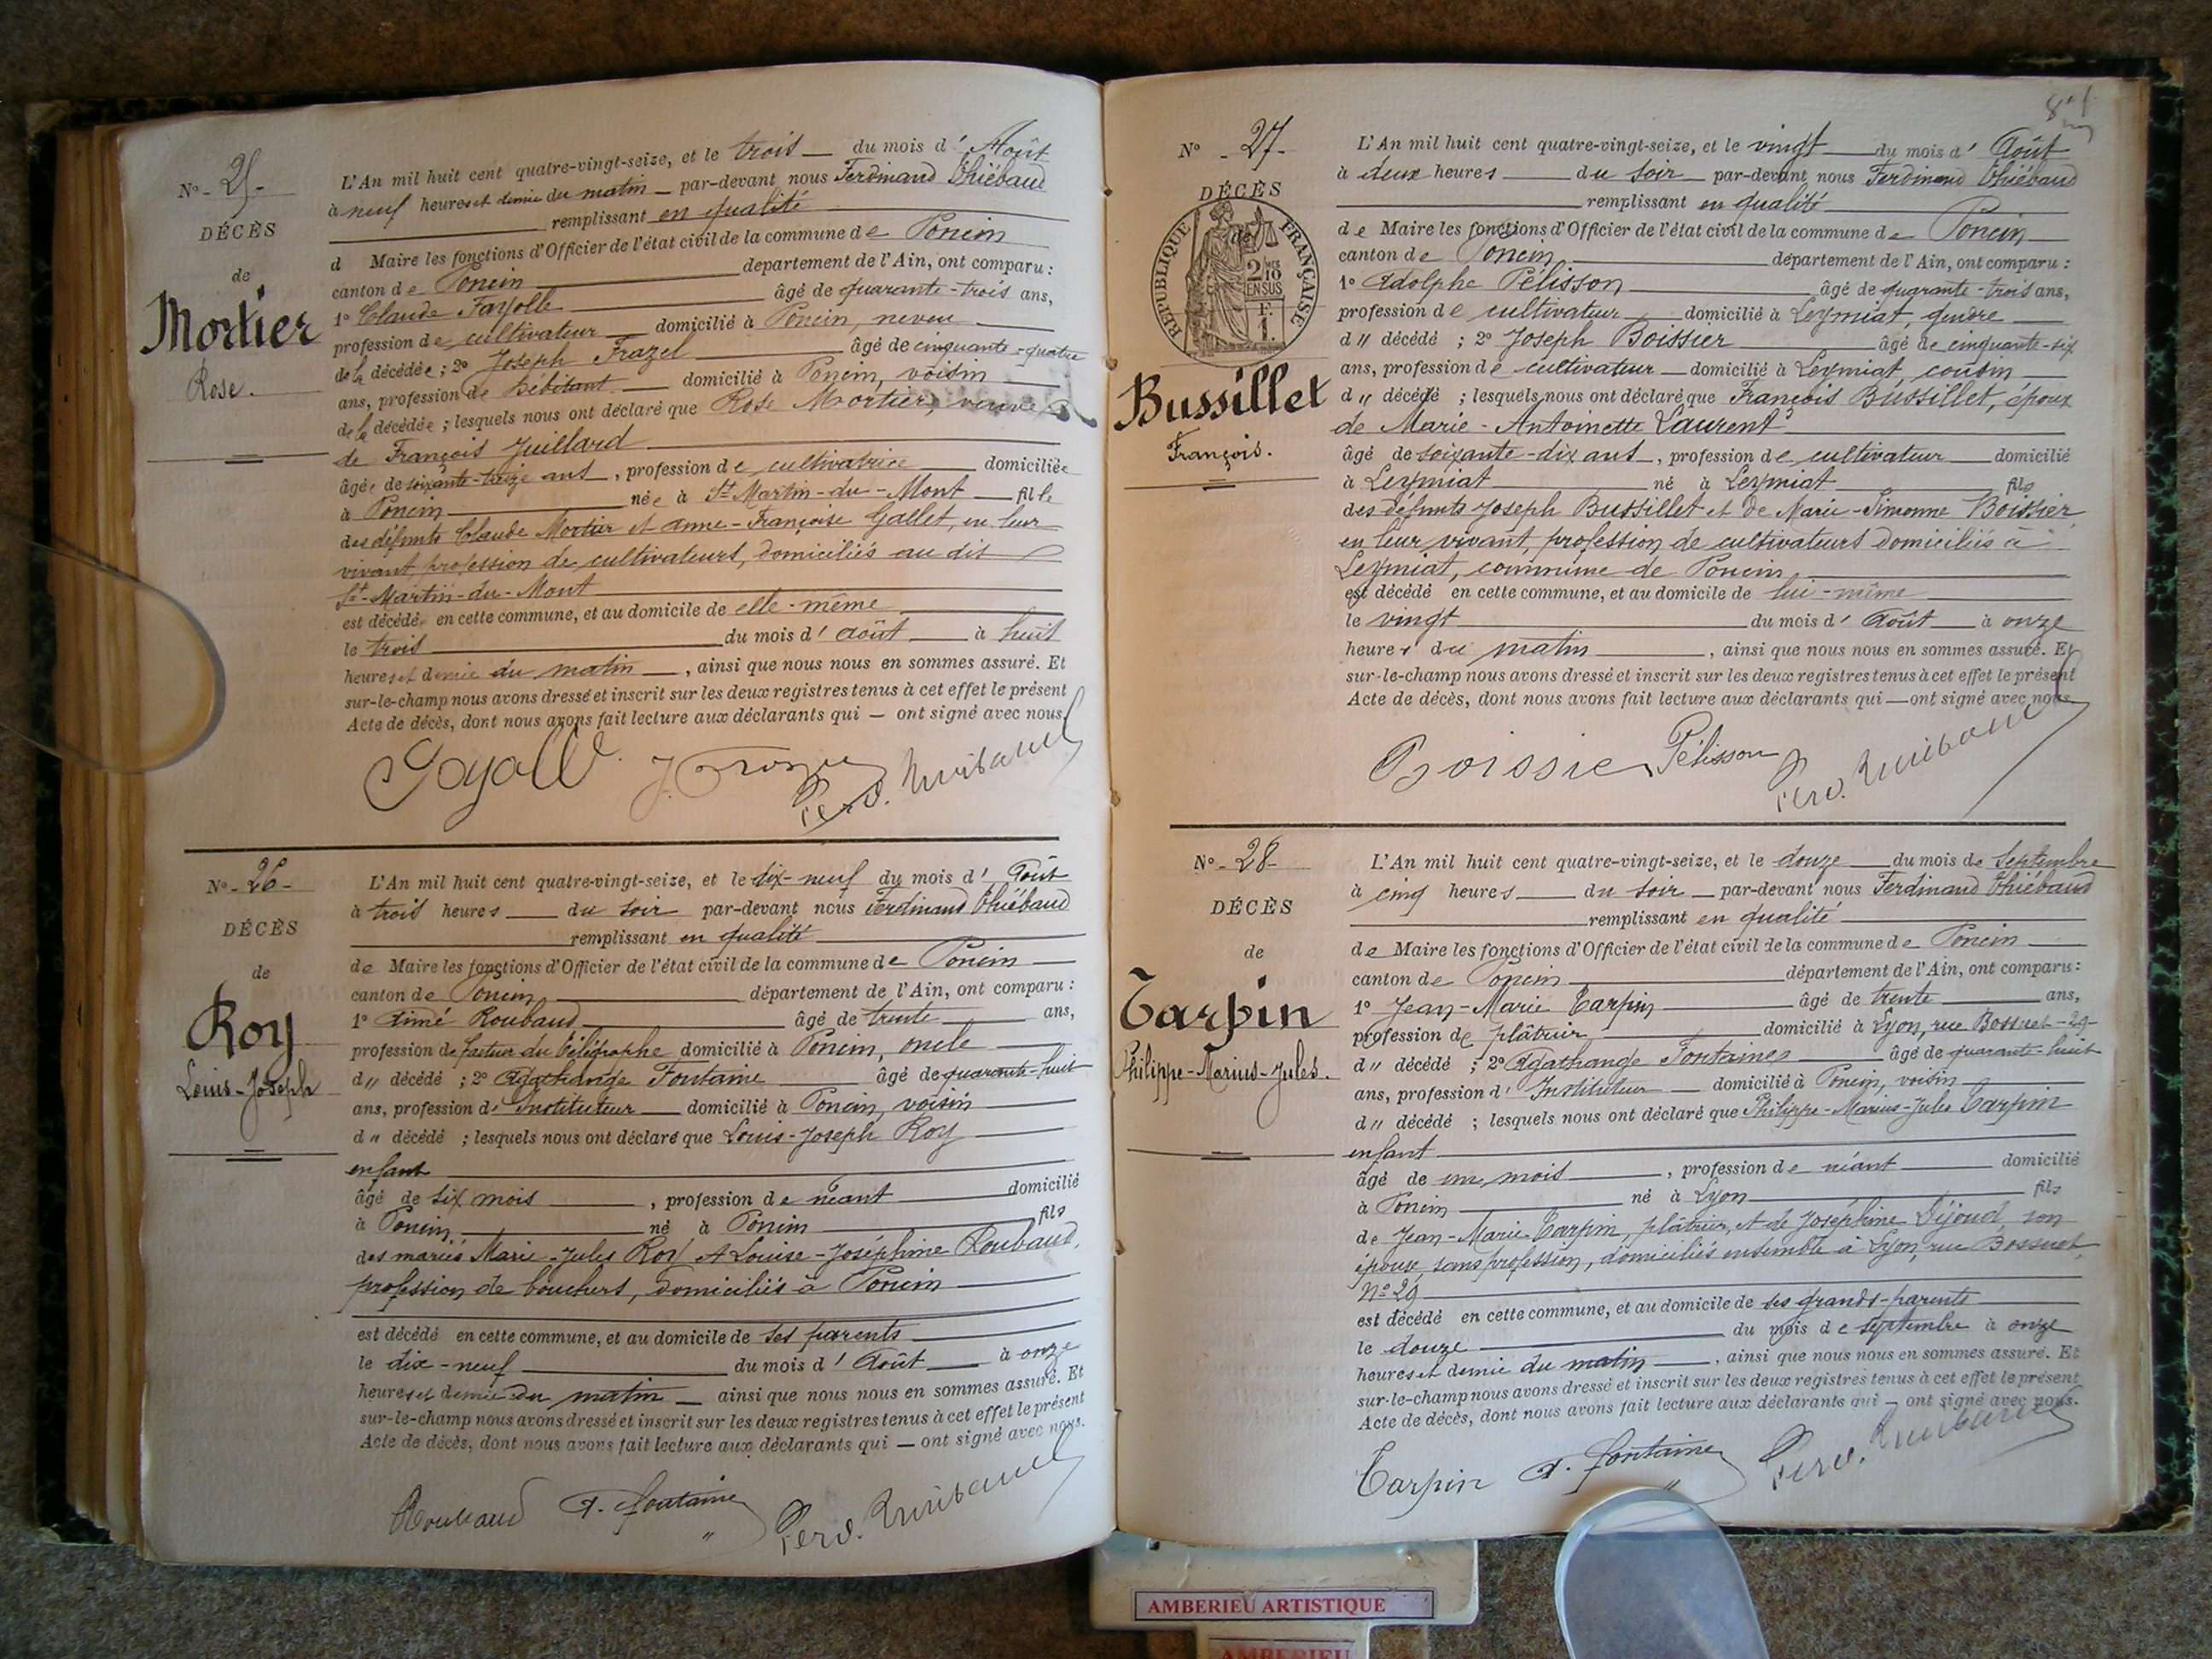 N° - 25 -
DÉCÈS
de
Mortier
Rose.
L'An mil huit cent quatre-vingt-seize, et le trois du mois d' Août
à neuf heures et demie du matin par-devant nous Ferdinand Thiébaud
remplissant en qualité
d Maire les fonctions d'Officier de l'état civil de la commune de Poncin
canton de Poncin département de l'Ain, ont comparu :
1° Claude Fayolle âgé de quarante-trois ans,
profession de cultivateur domicilié à Poncin, neveu
de la décédée ; 2° Joseph Frazel âgé de cinquante-quatre
ans, profession de Débitant domicilié à Poncin, voisin
de la décédée ; lesquels nous ont déclaré que Rose Mortier, veuve
de François Juillard
âgée de soixante-treize ans, profession de cultivatrice domiciliée
à Poncin née à St-Martin-du-Mont fille
des défunts Claude Mortier et Anne-Françoise Gallet, en leur
vivant, profession de cultivateurs, domiciliés au dit
St-Martin-du-Mont
est décédée en cette commune, et au domicile de elle-même
le trois du mois d' Août à huit
heures et demie du matin, ainsi que nous nous en sommes assuré. Et
sur-le-champ nous avons dressé et inscrit sur les deux registres tenus à cet effet le présent
Acte de décès, dont nous avons fait lecture aux déclarants qui — ont signé avec nous.
Fayolle Ferd. Thiébaud
N° - 26 -
DÉCÈS
de
Roy
Louis-Joseph
L'An mil huit cent quatre-vingt-seize, et le dix-neuf du mois d' Août
à trois heures du soir par-devant nous Ferdinand Thiébaud
remplissant en qualité
de Maire les fonctions d'Officier de l'état civil de la commune de Poncin
canton de Poncin département de l'Ain, ont comparu :
1° Aimé Roubaud âgé de trente ans,
profession de facteur du télégraphe domicilié à Poncin, oncle
d " décédé ; 2° Agathange Fontaine âgé de quarante-huit
ans, profession d' Instituteur domicilié à Poncin, voisin
d " décédé ; lesquels nous ont déclaré que Louis-Joseph Roy
enfant
âgé de six mois, profession de néant domicilié
à Poncin né à Poncin fils
des mariés Marie-Jules Roy et Louise-Joséphine Roubaud,
profession de bouchers, domiciliés à Poncin
est décédé en cette commune, et au domicile de ses parents
le dix-neuf du mois d' Août à onze
heures et demie du matin ainsi que nous nous en sommes assuré. Et
sur-le-champ nous avons dressé et inscrit sur les deux registres tenus à cet effet le présent
Acte de décès, dont nous avons fait lecture aux déclarants qui — ont signé avec nous.
Roubaud A. Fontaine Ferd. Thiébaud
N° - 27 -
DÉCÈS
RÉPUBLIQUE FRANÇAISE
2/10 EN SUS
F.
1.
Bussillet
François.
L'An mil huit cent quatre-vingt-seize, et le vingt du mois d' Août
à deux heures du soir par-devant nous Ferdinand Thiébaud
remplissant en qualité
de Maire les fonctions d'Officier de l'état civil de la commune de Poncin
canton de Poncin département de l'Ain, ont comparu :
1° Adolphe Pélisson âgé de quarante-trois ans,
profession de cultivateur domicilié à Leymiat, gendre
d " décédé ; 2° Joseph Boissier âgé de cinquante-six
ans, profession de cultivateur domicilié à Leymiat, cousin
d " décédé ; lesquels nous ont déclaré que François Bussillet, époux
de Marie-Antoinette Laurent
âgé de soixante-dix ans, profession de cultivateur domicilié
à Leymiat né à Leymiat fils
des défunts Joseph Bussillet et de Marie-Simonne Boissier
en leur vivant, profession de cultivateurs domiciliés à
Leymiat, commune de Poncin
est décédé en cette commune, et au domicile de lui-même
le vingt du mois d' Août à onze
heures du matin, ainsi que nous nous en sommes assuré. Et
sur-le-champ nous avons dressé et inscrit sur les deux registres tenus à cet effet le présent
Acte de décès, dont nous avons fait lecture aux déclarants qui — ont signé avec nous.
Boissier Pélisson Ferd. Thiébaud
N° - 28
DÉCÈS
de
Tarpin
Philippe-Marius-Jules.
L'An mil huit cent quatre-vingt-seize, et le douze du mois de Septembre
à cinq heures du soir par-devant nous Ferdinand Thiébaud
remplissant en qualité
de Maire les fonctions d'Officier de l'état civil de la commune de Poncin
canton de Poncin département de l'Ain, ont comparu :
1° Jean-Marie Tarpin âgé de trente ans,
profession de plâtrier domicilié à Lyon, rue Bossuet - 29 -
d " décédé ; 2° Agathange Fontaines âgé de quarante-huit
ans, profession d' Instituteur domicilié à Poncin, voisin
d " décédé ; lesquels nous ont déclaré que Philippe-Marius-Jules Tarpin
enfant
âgé de un mois, profession de néant domicilié
à Poncin né à Lyon fils
de Jean-Marie Tarpin, plâtrier, et de Joséphine Déjoud, son
épouse, sans profession, domiciliés ensemble à Lyon, rue Bossuet,
N° 29
est décédé en cette commune, et au domicile de ses grands-parents
le douze du mois de septembre à onze
heures et demie du matin, ainsi que nous nous en sommes assuré. Et
sur-le-champ nous avons dressé et inscrit sur les deux registres tenus à cet effet le présent
Acte de décès, dont nous avons fait lecture aux déclarants qui — ont signé avec nous.
Tarpin A. Fontaine Ferd. Thiébaud
AMBERIEU ARTISTIQUE
AMBERIEU